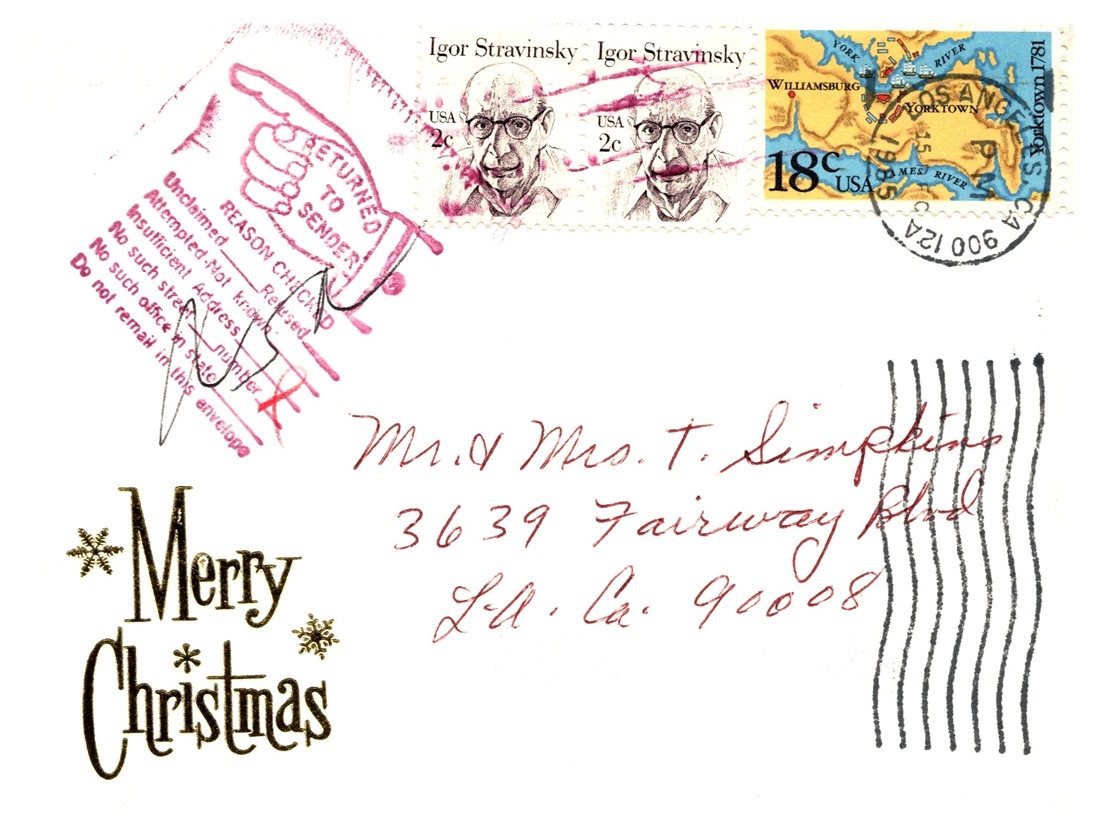 Igor Stravinsky
USA
2c
Igor Stravinsky
USA
2c
YORK RIVER
WILLIAMSBURG
YORKTOWN
JAMES RIVER
Yorktown 1781
18c
USA
LOS ANGELES CA 900 12A
PM
15
1985
RETURNED
TO
SENDER
REASON CHECKED
Unclaimed Refused
Attempted-Not known
Insufficient Address
No such street number
No such office in state
Do not remail in this envelope
Mr. & Mrs. T. Simpkins
3639 Fairway Blvd
L.A. Ca. 90008
Merry
Christmas